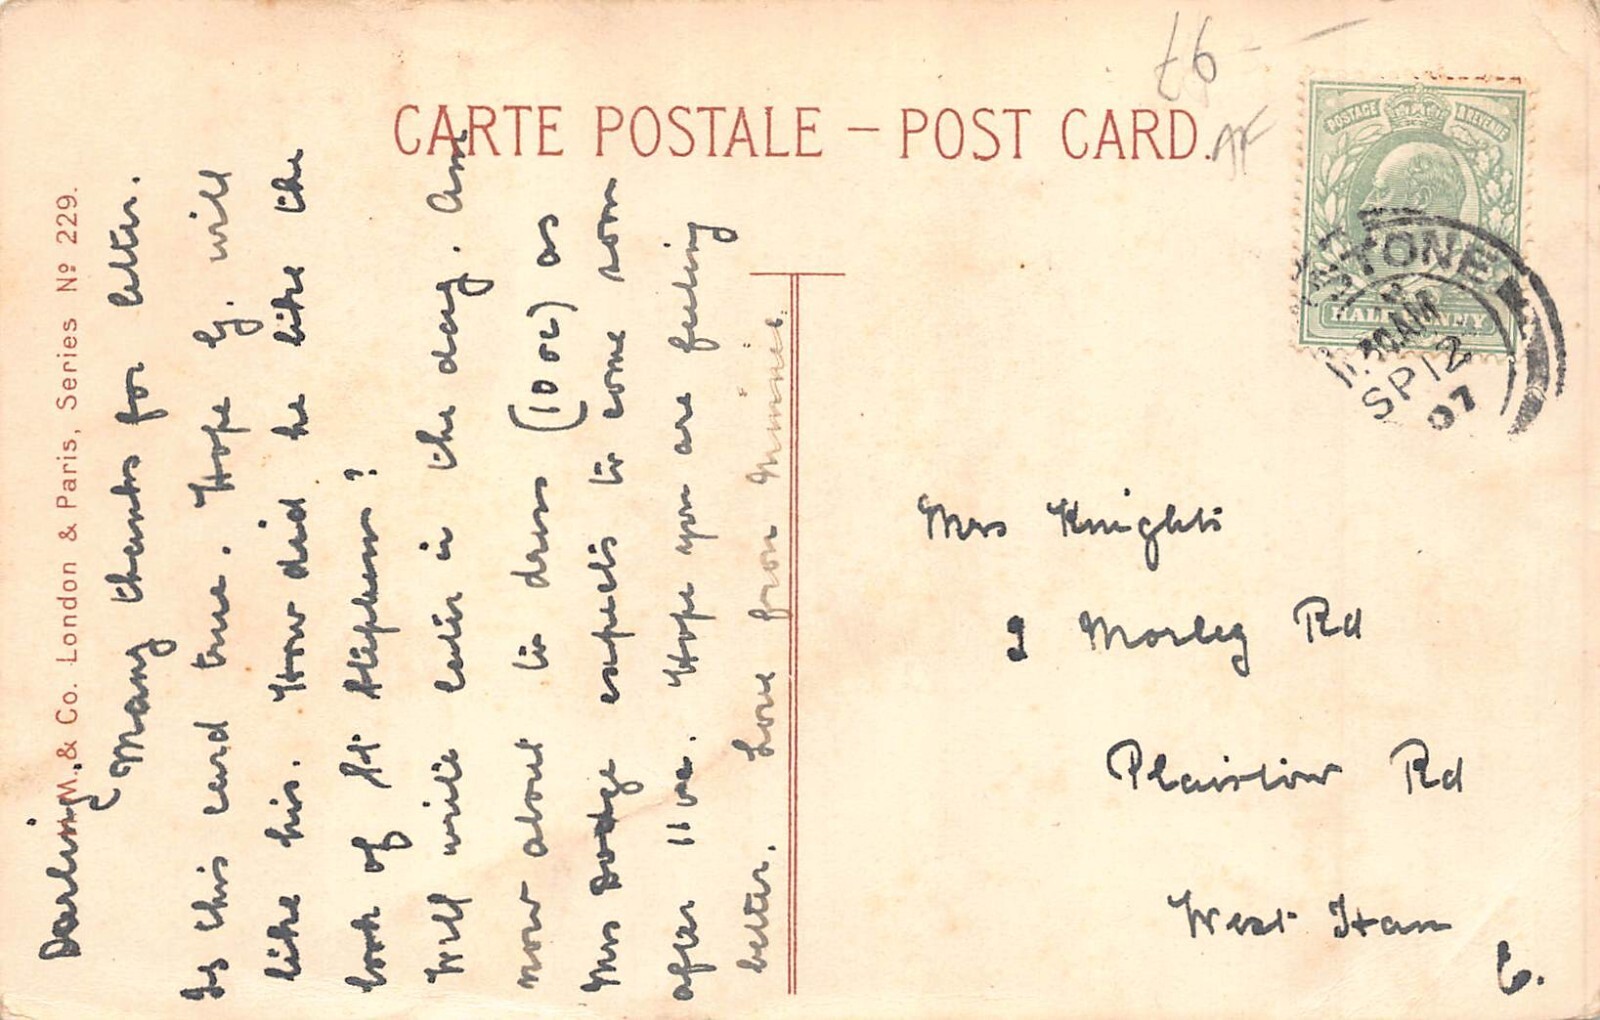 CARTE POSTALE – POST CARD.
£6
AF
POSTAGE & REVENUE
HALFPENNY
STONE
11.30AM
SP 12
07
M. & Co. London & Paris, Series No 229.
Darling,
Many thanks for letter.
Is this card true. Hope G. will
like his. How did he like the
look of St Stephens?
Will write later in the day. Am
now about to dress (10 oc) as
Mrs Dodge expects to come soon
after 11 oc. Hope you are feeling
better. Love from Minnie.
Mrs Knights
2 Morley Rd
Plaistow Rd
West Ham
E.